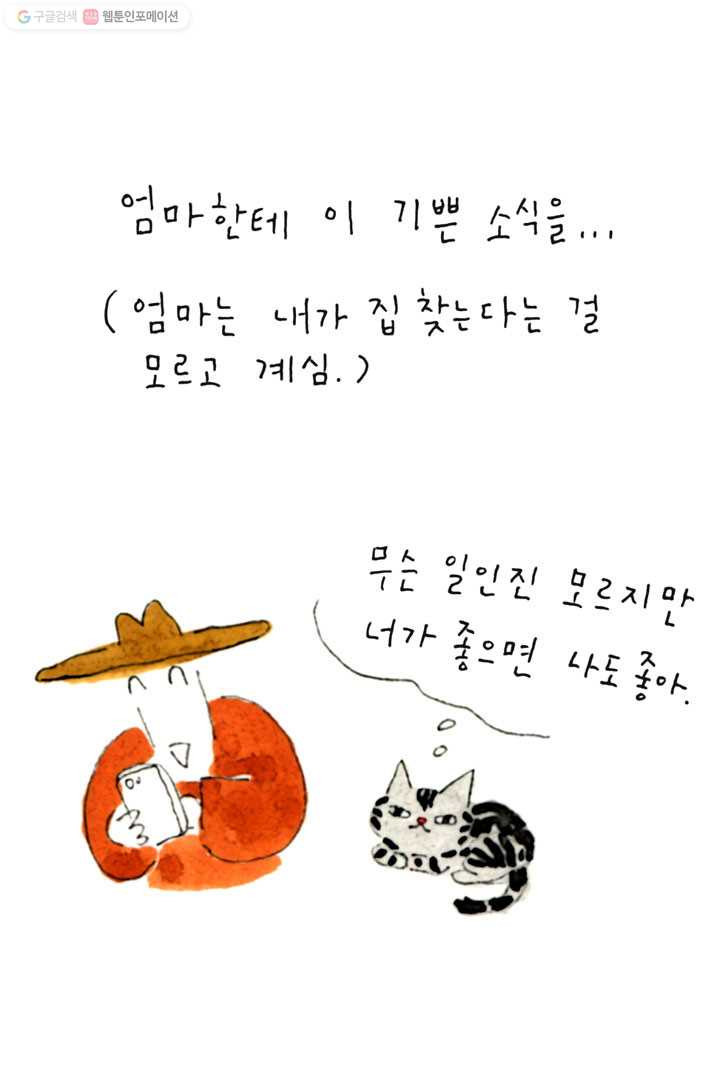 구글검색 웹툰인포메이션
엄마한테 이 기쁜 소식을...
(엄마는 내가 집 찾는다는 걸
모르고 계심.)
무슨 일인진 모르지만
너가 좋으면 나도 좋아.